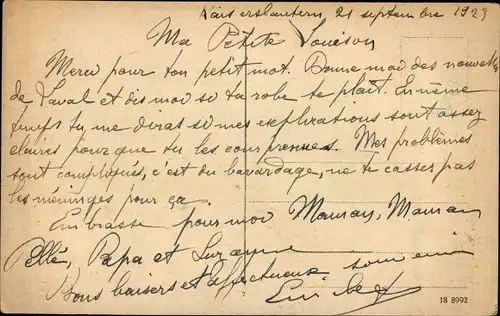 Kaiserslautern 21 septembre 1923
Ma Petite Louison
Merci pour ton petit mot. Donne moi des nouvelles
de Laval et dis moi si ta robe te plaît. En même
temps tu me diras si mes explications sont assez
claires pour que tu les comprennes. Mes problèmes
sont compliqués, c'est du bavardage, ne te casser pas
les méninges pour ça.
Embrasse pour moi Maman, Maman
Pellé, Papa et Suzanne
Bons baisers et affectueux souvenir
18 8992